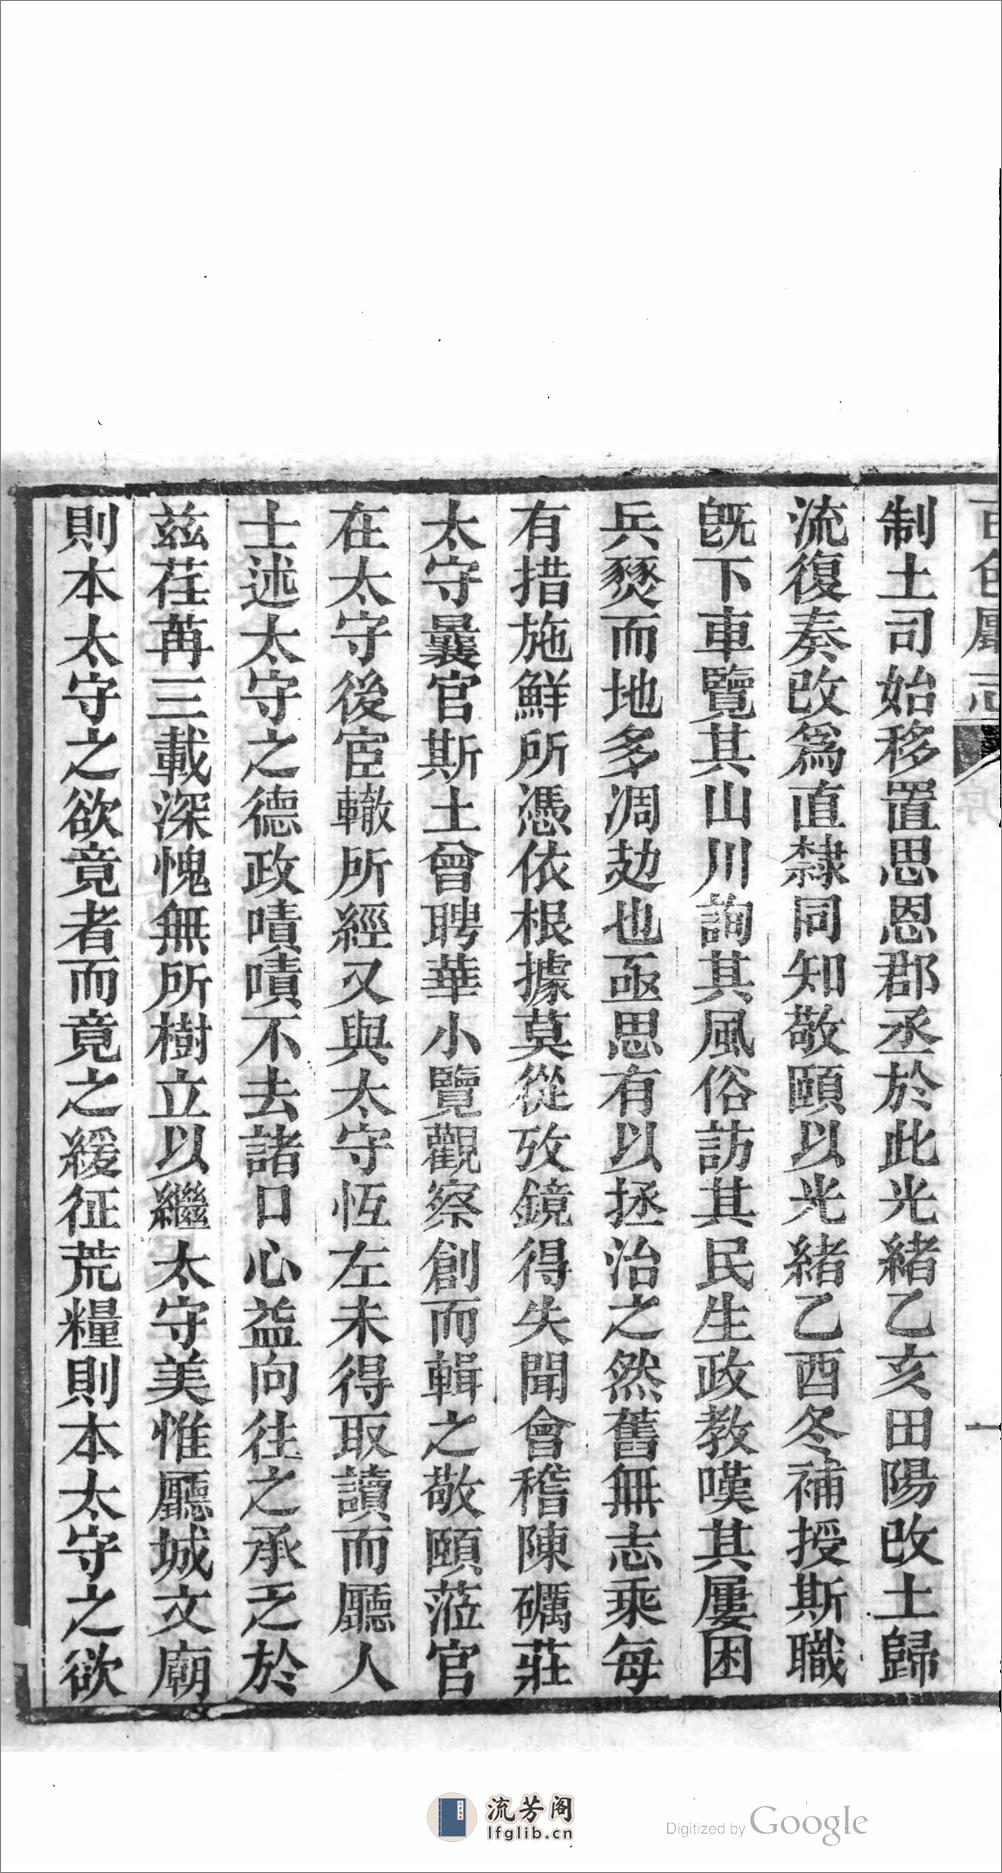 百色廳志
序
一
制土司始移置思恩郡丞於此光緒乙亥田陽改土歸
流復奏改爲直隸同知敬頤以光緒乙酉冬補授斯職
旣下車覽其山川詢其風俗訪其民生政教嘆其屢困
兵燹而地多凋攰也亟思有以拯治之然舊無志乘每
有措施鮮所憑依根據莫從攷鏡得失聞會稽陳礪莊
太守曩官斯土曾聘華小覽觀察創而輯之敬頤蒞官
在太守後宦轍所經又與太守恆左未得取讀而廳人
士述太守之德政嘖嘖不去諸口心益向往之承乏於
兹荏苒三載深愧無所樹立以繼太守美惟廳城文廟
則本太守之欲竟者而竟之緩征荒糧則本太守之欲
流芳阁
lfglib.cn
Digitized by Google